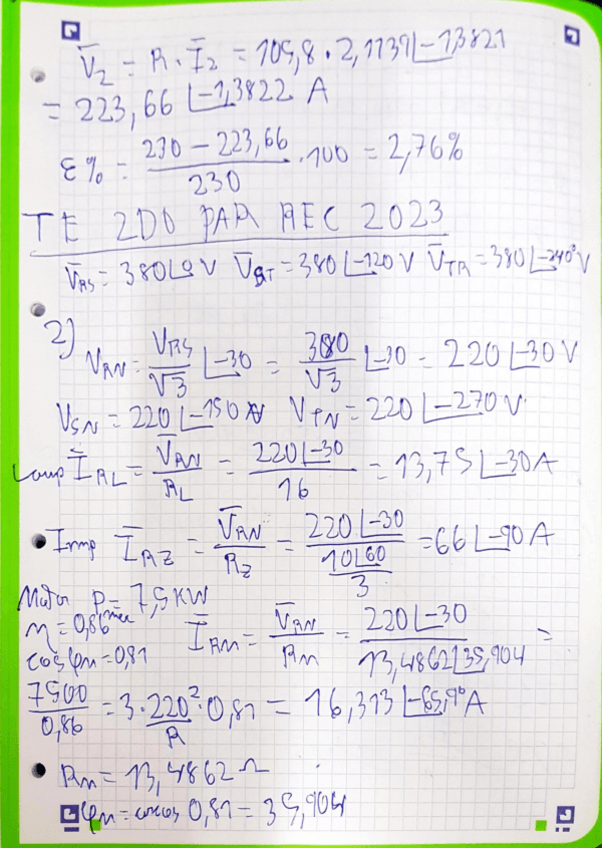 V̄₂ = R · Ī₂ = 105,8 · 2,1139∠-1,3821
= 223,66 ∠-1,3822 A
ε% = (230 - 223,66)/230 · 100 = 2,76%
TE 2DO PAR REC 2023
V̄RS = 380∠0 V V̄ST = 380∠-120 V V̄TR = 380∠-240° V
2)
VRN = VRS/√3 ∠-30 = 380/√3 ∠-30 = 220∠-30 V
VSN = 220∠-150 V VTN = 220∠-270 V
Lamp ĪRL = V̄RN/RL = 220∠-30/16 = 13,75∠-30 A
• Imp ĪRZ = V̄RN/RZ = 220∠-30/(10∠60/3) = 66∠-90 A
Motor Pmec = 7,5 KW
η = 0,86
cos φm = 0,81
ĪRM = V̄RN/Rm = 220∠-30/13,4862∠35,904 =
7500/0,86 = 3·220²/R · 0,81 = 16,313∠-65,9° A
• Rm = 13,4862 Ω
φm = arcos 0,81 = 35,904